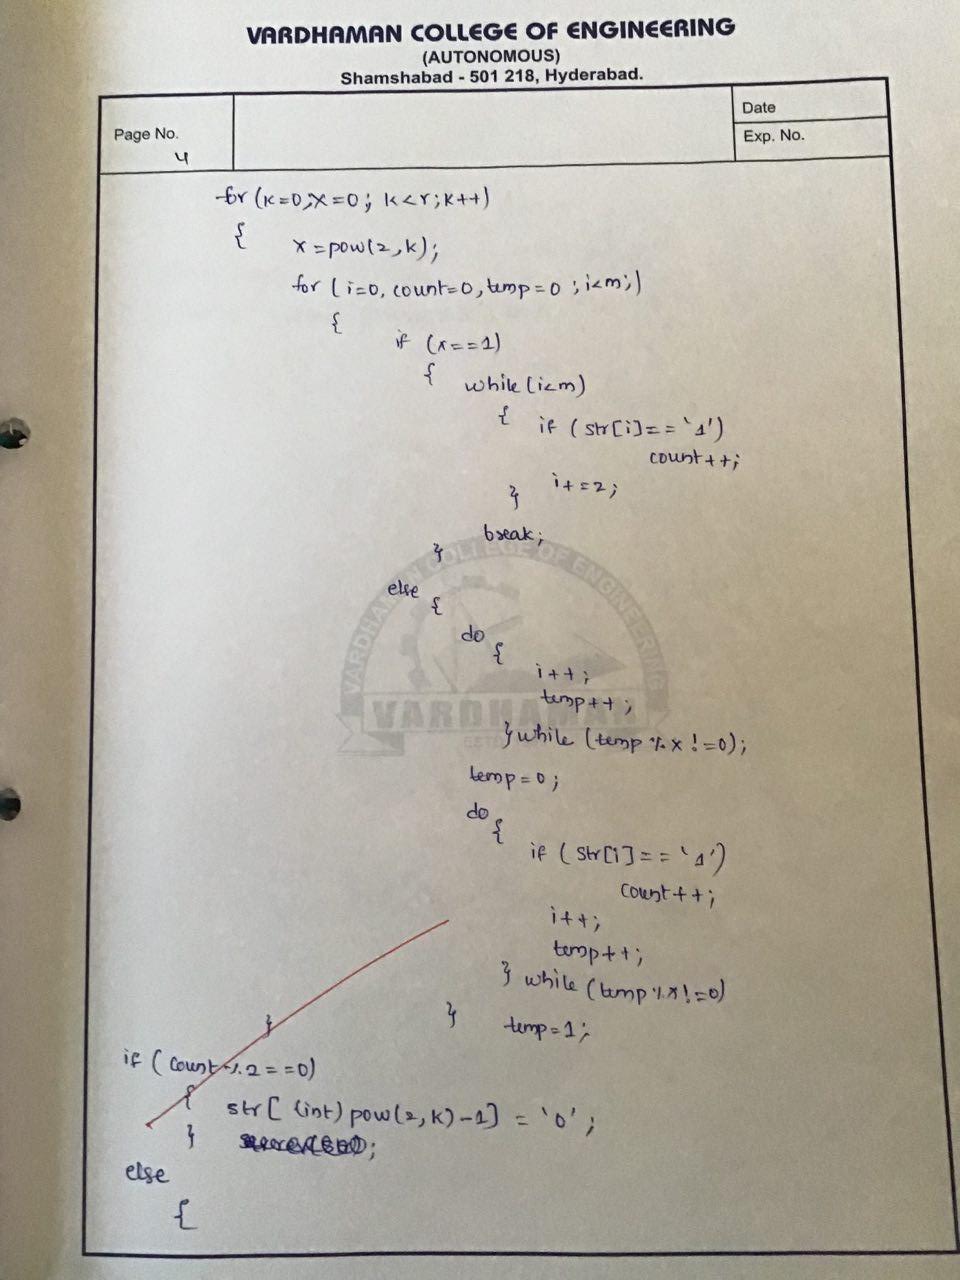 VARDHAMAN COLLEGE OF ENGINEERING
(AUTONOMOUS)
Shamshabad - 501 218, Hyderabad.
Page No.
4
Date
Exp. No.
for (k=0,x=0; k<r;k++)
{
x=pow(2,k);
for (i=0, count=0, temp=0 ;i<m;)
{
if (x==1)
{ while (i<m)
{ if (str[i]=='1')
count++;
i+=2;
}
break;
}
else
{
do
{
i++;
temp++;
}while (temp%x!=0);
temp=0;
do
{
if (str[i]=='1')
count++;
i++;
temp++;
} while (temp%x!=0)
temp=1;
}
}
if (count%2==0)
{
str[(int)pow(2,k)-1] = '0';
}
else
{
VARDHAMAN COLLEGE OF ENGINEERING
VARDHAMAN